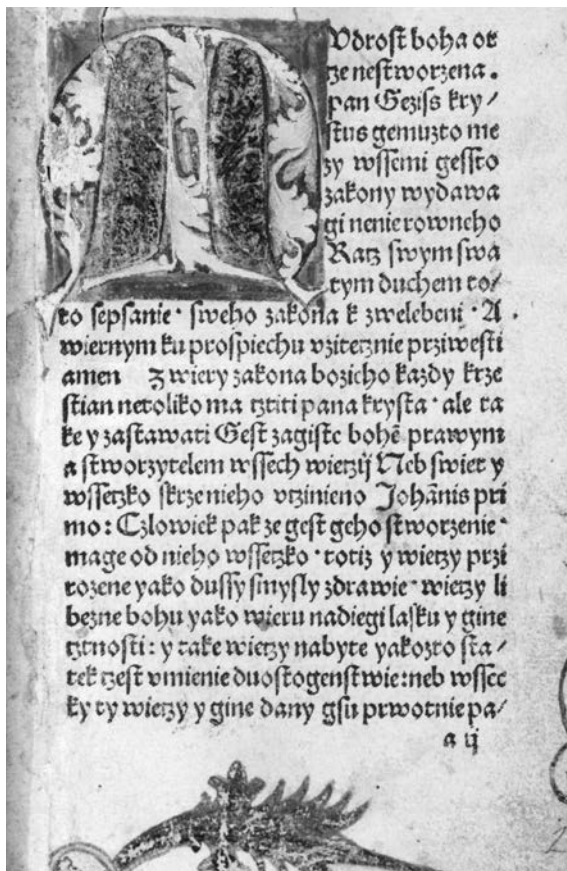 MVdrost boha ot
tze nestworzena.
pan Geziss kry/
stus gemuzto me
zy wssemi gessto
zakony wydawa
gi nenie rowneho
Ratz swym swa
tym duchem to/
to sepsanie · sweho zakona k zwelebeni · A
wiernym ku prospiechu vzitecznie prziwesti
amen z wiery zakona bozicho kazdy krze
stian netoliko ma tztiti pana krysta · ale ta
ke y zastawati Gest zagiste bohē prawym
a stworzytelem wssech wietzij Neb swiet y
wssetzko skrze nieho vtzinieno Johānis pri
mo: Czlowiek pak ze gest geho stworzenie ·
mage od nieho wssetzko · totiz y wietzy przi
rozene yako dussy smysly zdrawie · wietzy li
bezne bohu yako wieru nadiegi lasku y gine
tztnosti: y take wietzy nabyte yakozto sta/
tek tzest vmienie duostogenstwie: neb wssec
ky ty wietzy y gine dany gsu prwotnie pa/
a ij